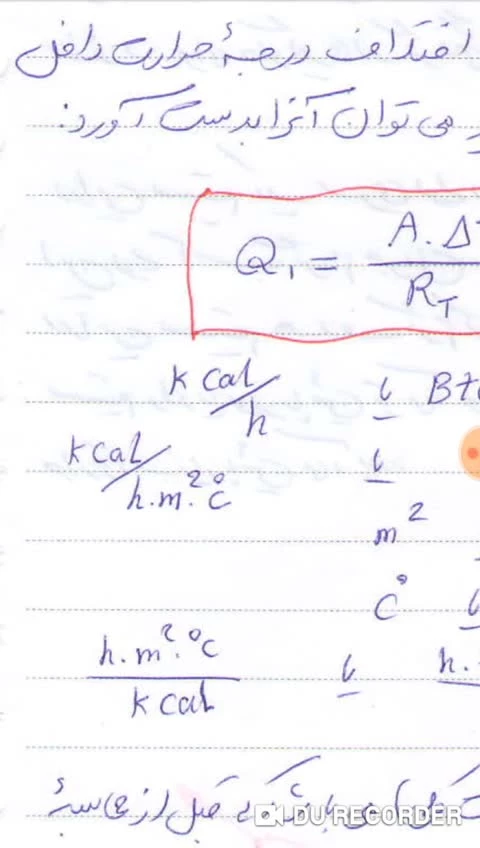 اختلاف درجهٔ حرارت داخل
می توان آنرا بدست آورد:
Q₁ = A.Δ / R_T
kcal/h یا Bt
kcal/h.m².°C یا
m²
C° یا
h.m².°C / kcal یا h.
قبل از محاسبهٔ
DU RECORDER